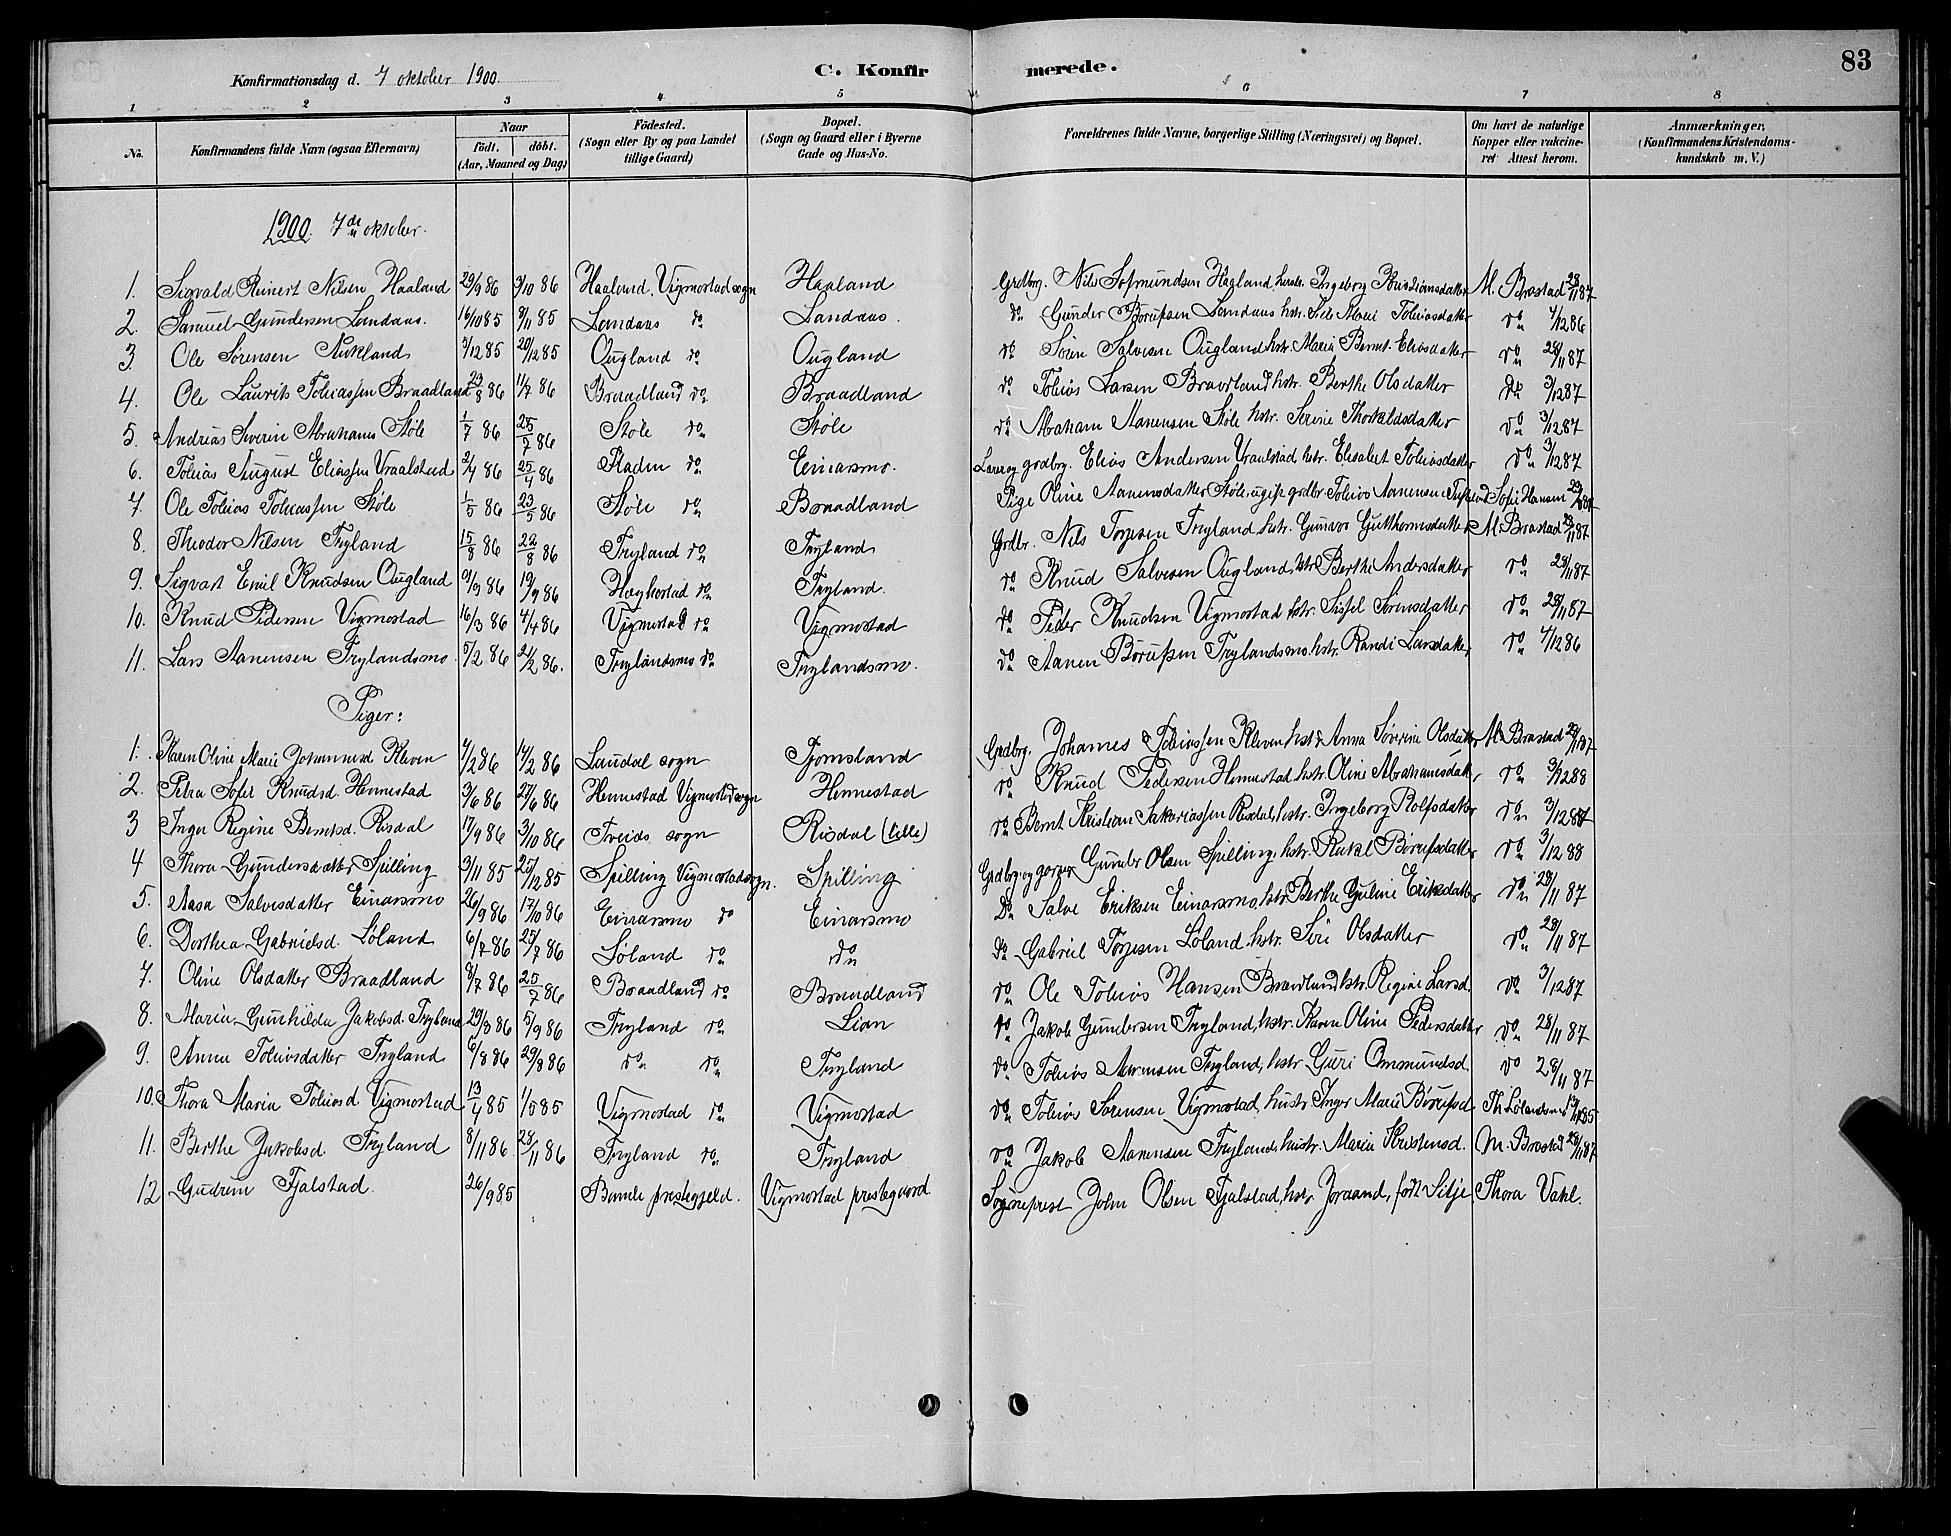 Konfirmationsdag d. 7 oktober 1900.
C. Konfirmerede.
83
1 2 3 4 5 6 7 8
No.
Konfirmandens fulde Navn (ogsaa Efternavn)
Naar födt. döbt. (Aar, Maaned og Dag)
Födested. (Sogn eller By og paa Landet tillige Gaard)
Bopæl. (Sogn og Gaard eller i Byerne Gade og Hus-No.
Forældrenes fulde Navne, borgerlige Stilling (Næringsvei) og Bopæl.
Om havt de naturlige Kopper eller vakcineret Attest herom.
Anmærkninger. (Konfirmandens Kristendomskundskab m. V.)
1900. 7de oktober.
1. Sigvald Reinert Nilsen Haaland 29/9 86 3/10 86 Haaland, Vigmostad sogn Haaland Grdbrg. Nils Haaland hustr. Ingeborg Kristiansdatter M. Brostad 28/11 87
2. Samuel Gundersen Landaas. 16/10 85 8/11 85 Landaas do Landaas. do Gunder Landaas hstr. Tobiasdatter do 4/12 86
3. Ole Sörensen 3/12 85 20/12 85 Ougland do Ougland do Sören Salvesen Ougland hstr. Maria Bernt. Eliasdatter do 28/11 87
4. Ole Laurits Tobiassen Braadland 86 11/7 86 Braadland do Braadland do Tobias Larsen Braadland hstr. Berthe Olsdatter do 3/12 87
5. Andreas Severin Abrahams Støle 1/7 86 25/7 86 Støle do Støle do Abraham Aanensen Støle hstr. Serine Thorkildsdatter do 3/12 87
6. Tobias August Eliassen Vraalstad 2/4 86 25/4 86 do Einarsmo. Lærer og grdbrg. Elias Andersen Vraalstad hstr. Elisabet Tobiasdatter do 3/12 87
7. Ole Tobias Tobiassen Støle 1/5 86 23/5 86 Støle do Braadland Pige Oline Aanensdatter Støle ugift grdbr Tobias Aanensen Sofie Hansen
8. Theodor Nilsen Tryland 15/8 86 22/8 86 Tryland do Tryland Grdbr. Nils Torjesen Tryland hstr. Gunvor Gutthormsdatter M. Brostad 28/11 87
9. Sigvart Emil Knudsen Ougland 9/9 86 19/9 86 Høgkostad do Tryland. do Knud Salvesen Ougland, hstr Berthe Andersdatter do 28/11 87
10. Knud Pedersen Vigmostad 16/3 86 4/4 86 Vigmostad do Vigmostad do Peder Knudsen Vigmostad hstr. Sissel Sörensdatter do 28/11 87
11. Lars Aanensen Trylandsmo 5/2 86 21/2 86. Trylandsmo do Trylandsmo. do Aanen Børufsen Trylandsmo. hstr. Randi Larsdatter do 4/12 86
Piger:
1. Karen Oline Marie Johannesd Kleven 4/2 86 14/2 86 Laudal sogn Tjomsland Grdbrg. Johanes Tobiassen Kleven hstr. Anna Severine Olsdatter M. Brostad 28/11 87
2. Petra Sofie Knudsd. Hennestad 3/6 86 27/6 86 Hennestad Vigmostad sogn Hennestad do Knud Pedersen Hennestad hstr. Oline Abrahamsdatter do 3/12 88
3 Inger Regine Berntsd. Risdal 17/9 86 3/10 86 Tveids sogn Risdal (lille) do Bernt Kristian Sakariassen Risdal, hstr. Ingeborg Rolfsdatter do 3/12 87
4 Thora Gundersdatter Spilling 3/11 85 25/12 85 Spilling Vigmostad sogn. Spilling Grdbrg og garver Gunder Olsen Spilling, hstr. Rakel Børufsdatter do 3/12 88
5. Aasa Salvesdatter Einarsmo 26/9 86 17/10 86 Einarsmo do Einarsmo Do Salve Eriksen Einarsmo, hstr Berthe Guline Eriksdatter do 28/11 87
6. Dorthea Gabrielsd. Løland 6/7 86 25/7 86 Løland do do do Gabriel Torjesen Løland, hstr. Siri Olsdatter do 28/11 87
7. Oline Olsdatter Braadland 8/7 86 25/7 86 Braadland do Braadland do Ole Tobias Hansen Braadland hstr. Regine Larsd. do 3/12 87
8. Maria Gunhilda Jakobsd. Tryland 29/8 86 5/9 86 Tryland do Lian do Jakob Gundersen Tryland, hstr. Karen Oline Pedersdatter do 28/11 87
9. Anna Tobiasdatter Tryland 6/8 86 29/8 86 do do Tryland do Tobias Aanensen Tryland, hstr Guri Ommundsd. do 28/11 87
10. Thora Maria Tobiasd. Vigmostad 13/4 85 1/5 85 Vigmostad do Vigmostad do Tobias Sörensen Vigmostad, hustr. Inger Marie Børufsd. Th Lølandsmo
11. Berthe Jakobsd. Tryland 8/11 86 28/11 86 Tryland do Tryland do Jakob Aanensen Tryland, hustr. Maria Kristensd. M. Brostad 28/11 87
12 Gudrun Fjalstad. 26/9 85 Bamle prestegjeld. Vigmostad prestegaard Sogneprest John Olsen Fjalstad, hstr. Joraand, född Silje Thora Vahl.